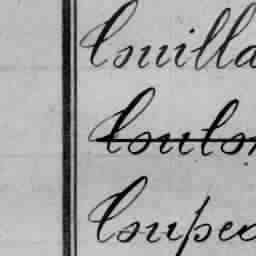 Couilla
Coulon
Coupea